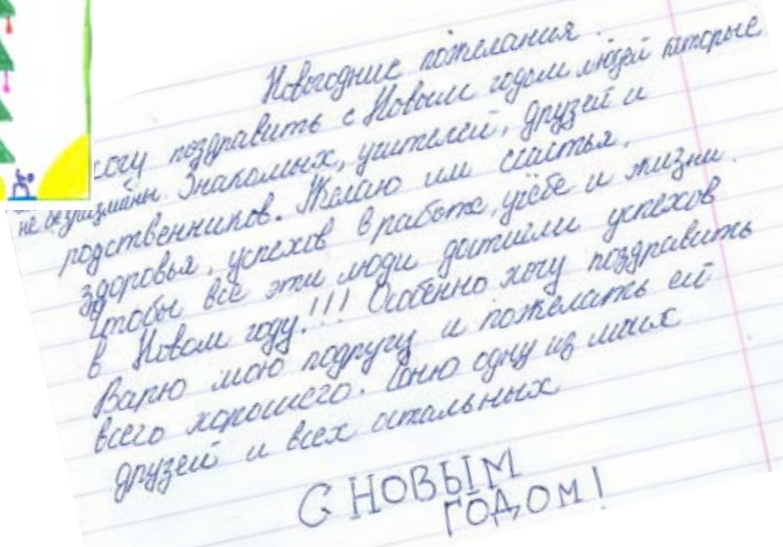 Новогодние пожелания.
хочу поздравить с Новым годом людей которые
не безразличны. Знакомых, учителей, друзей и
родственников. Желаю им счастья,
здоровья, успехов в работе, учёбе и жизни.
Чтобы все эти люди дитигли успехов
в Новом году!!! Особенно хочу поздравить
Варю мою подругу и пожелать ей
всего хорошего. Соню одну из моих
друзей и всех остальных
С НОВЫМ
ГОДОМ!